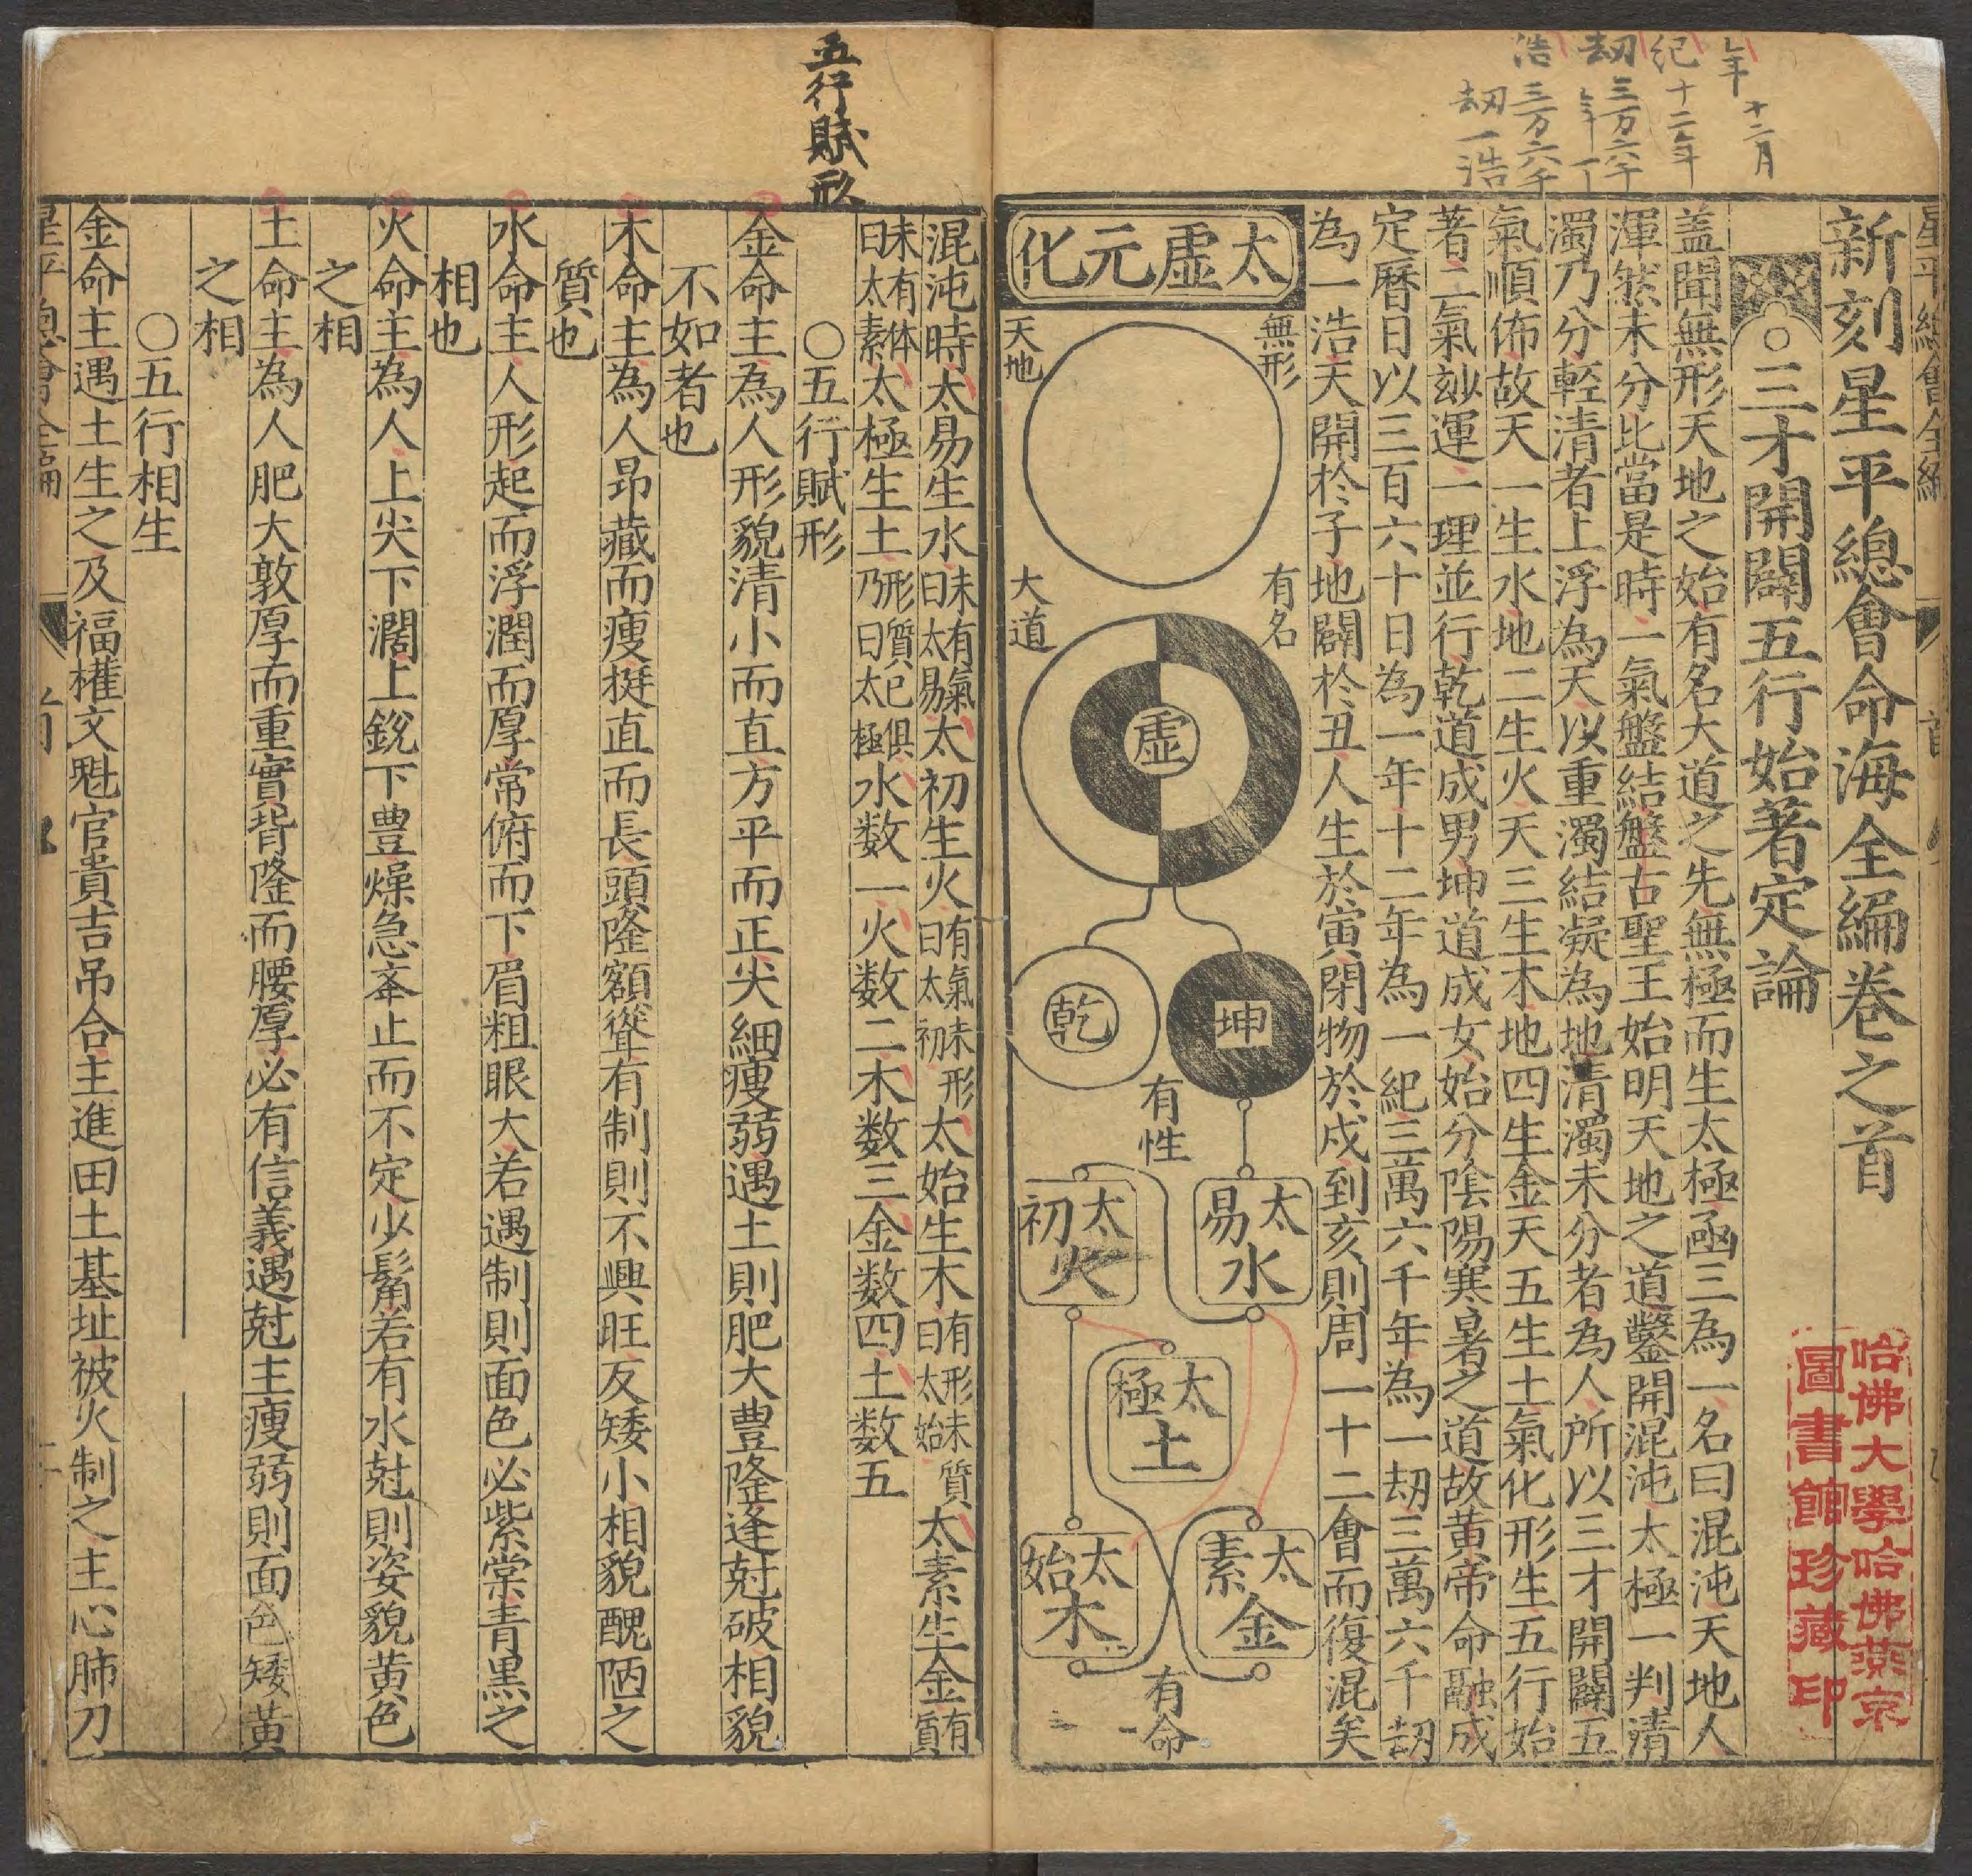 年十二月
紀十二年
刼三万六千年一
浩三万六千
刼一浩
新刻星平總會命海全編卷之首
○三才開闢五行始著定論
蓋聞無形天地之始有名大道之先無極而生太極函三為一名曰混沌天地人
渾然未分比當是時一氣盤結盤古聖王始明天地之道鑿開混沌太極一判清
濁乃分輕清者上浮為天以重濁結凝為地清濁未分者為人所以三才開闢五
氣順佈故天一生水地二生火天三生木地四生金天五生土氣化形生五行始
著二氣玅運一理並行乾道成男坤道成女始分陰陽寒暑之道故黃帝命融成
定曆日以三百六十日為一年十二年為一紀三萬六千年為一刼三萬六千刼
為一浩天開於子地闢於丑人生於寅閉物於戍到亥則周一十二會而復混矣
太虛元化
無形
天地
有名
大道
虛
坤
乾
有性
太易水
太初火
太極土
太素金
太始木
有命
哈佛大學哈佛燕京
圖書館珍藏印
混沌時太易生水未有氣曰太易太初生火有氣未形曰太初太始生木有形未質曰太始太素生金有質
未有体曰太素太極生土形質已俱乃曰太極水数一火数二木数三金数四土数五
五行賦形
○五行賦形
金命主為人形貌清小而直方平而正尖細瘦弱遇土則肥大豊隆逢尅破相貌
不如者也
木命主為人昻藏而瘦挺直而長頭隆額聳有制則不興旺反矮小相貌醜陋之
質也
水命主人形起而浮潤而厚常俯而下眉粗眼大若遇制則面色必紫棠青黑之
相也
火命主為人上尖下濶上銳下豊燥急夲止而不定少髯若有水尅則姿貌黃色
之相
土命主為人肥大敦厚而重實背隆而腰厚必有信義遇尅主瘦弱則面色矮黃
之相
○五行相生
金命主遇土生之及福權文魁官貴吉吊合主進田土基址被火制之主心肺刀